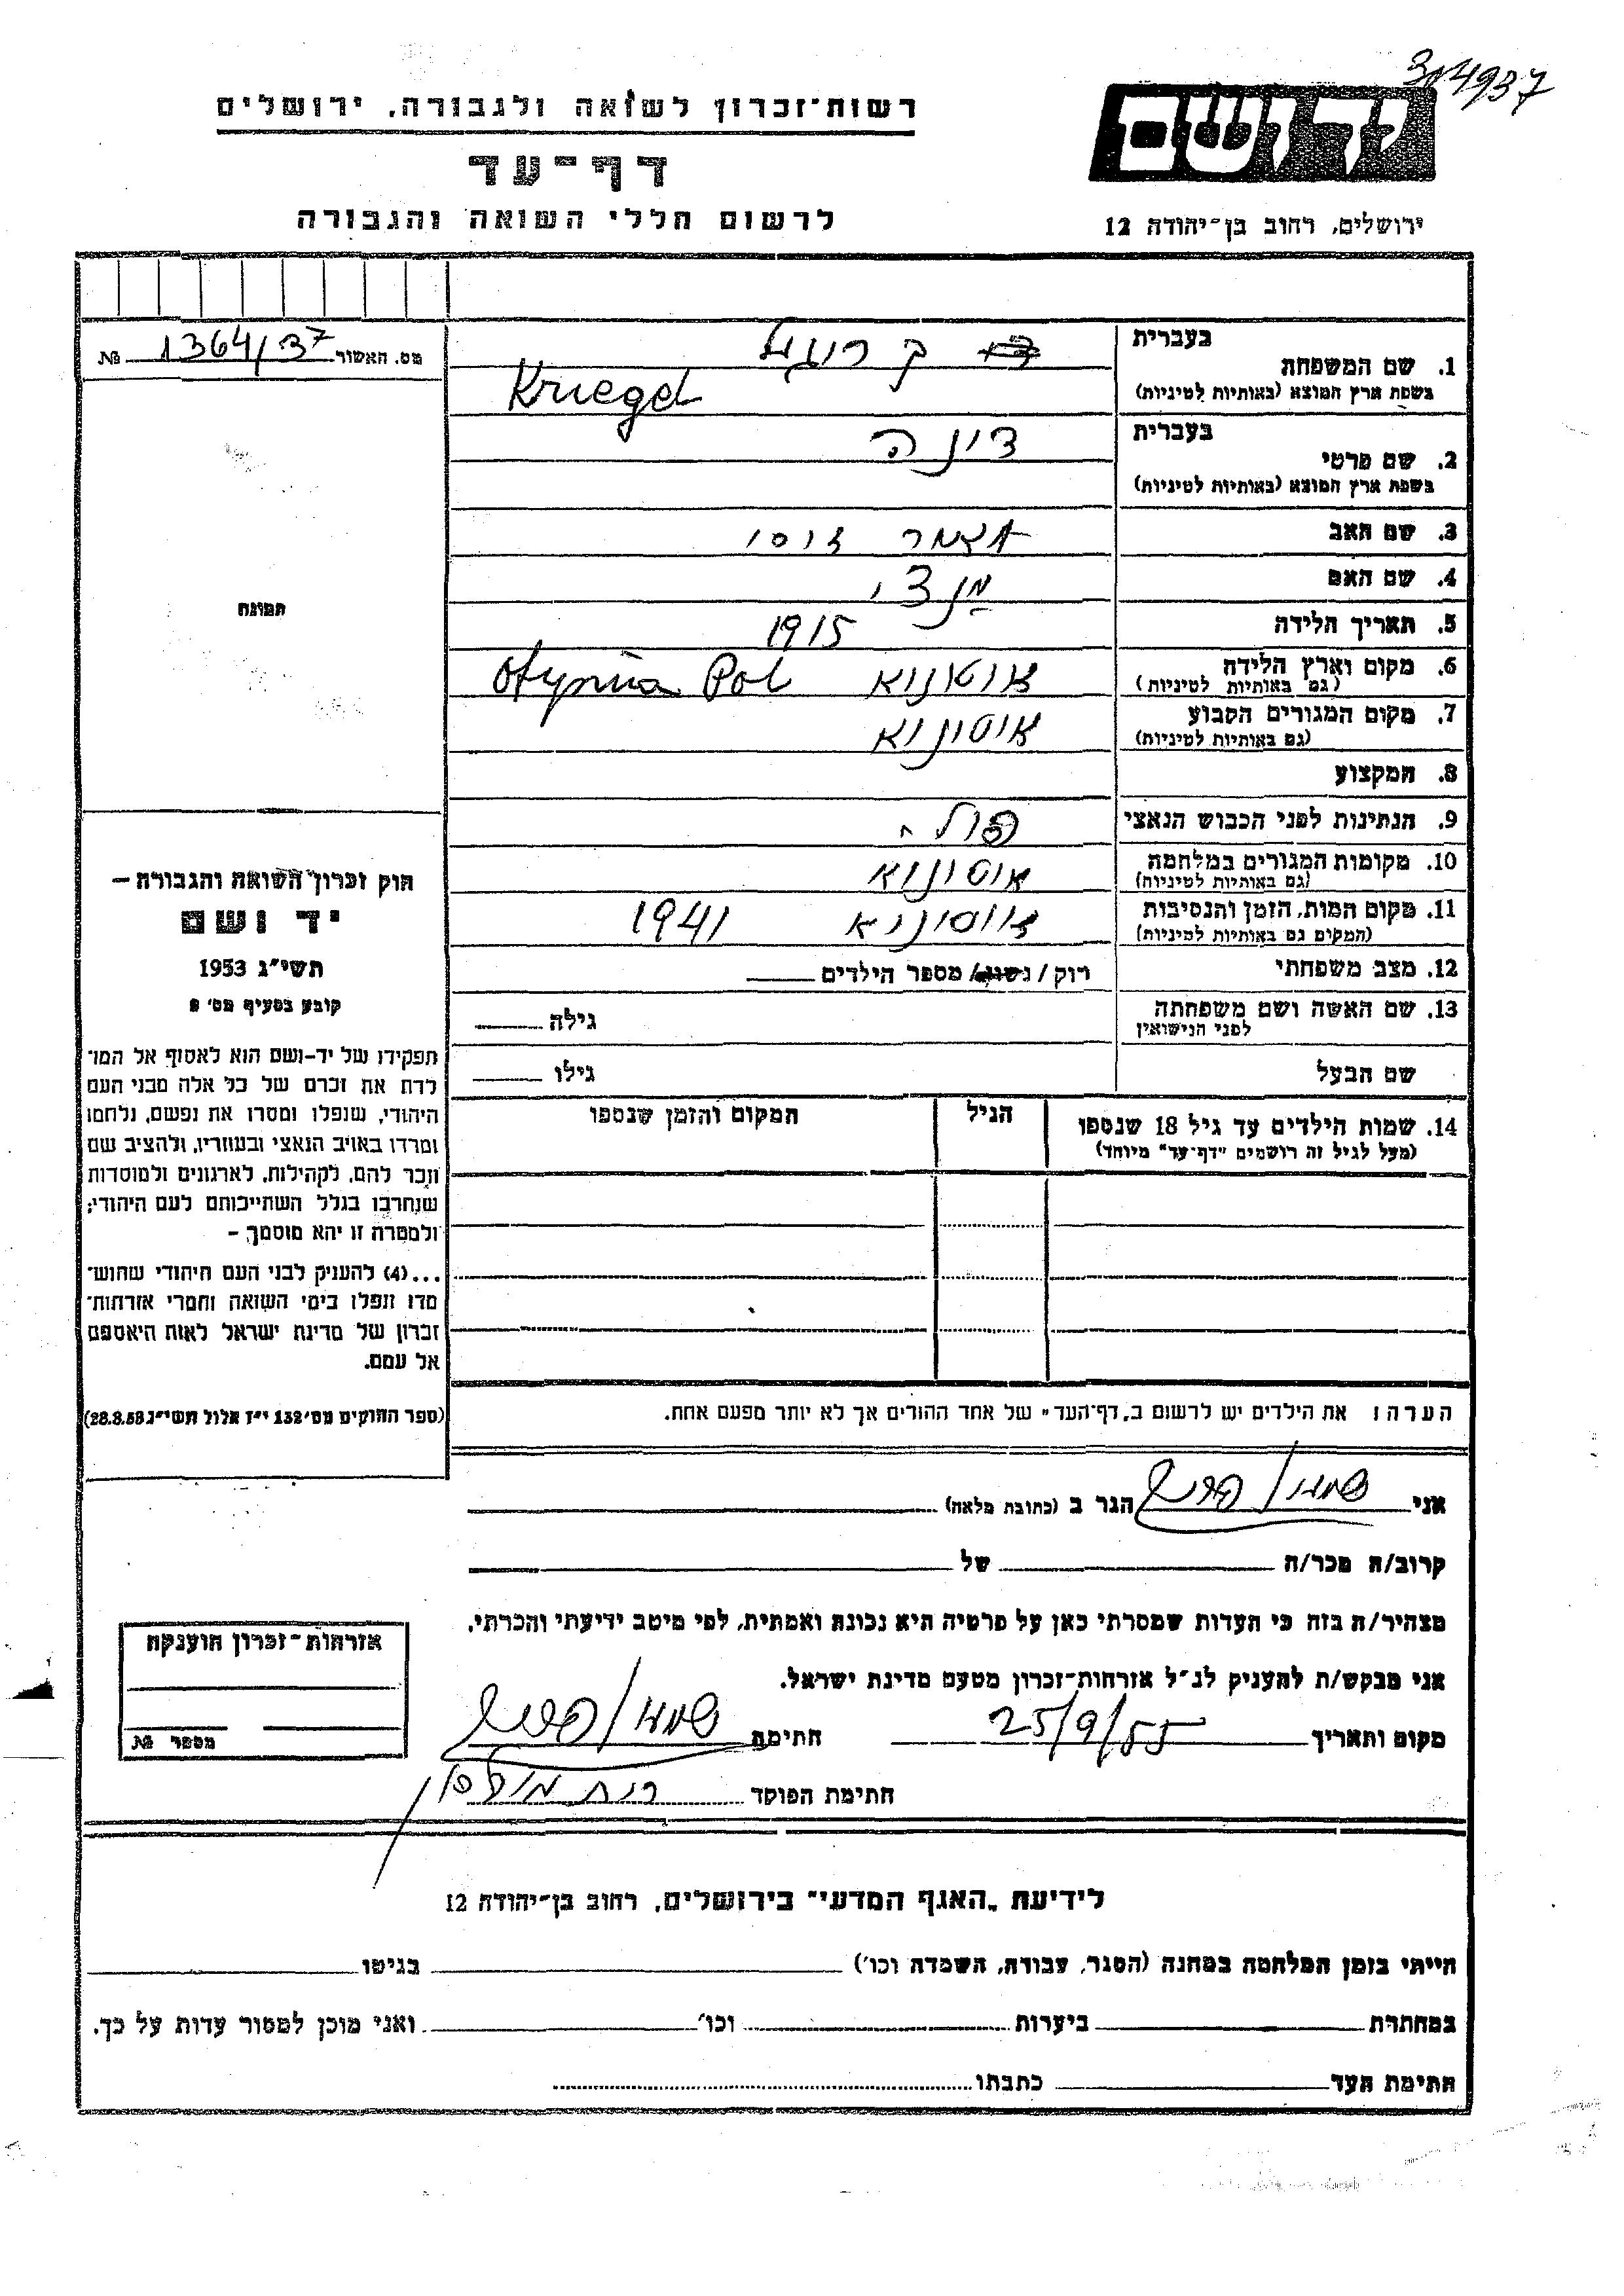 304937
יד ושם
רשות-זכרון לשואה ולגבורה, ירושלים
דף-עד
לרשום חללי השואה והגבורה
ירושלים, רחוב בן-יהודה 12
מס. האשור 1364/37 №
בעברית
1. שם המשפחה קרוגל
בשפת ארץ המוצא (באותיות לטיניות) Kruegel
בעברית
2. שם פרטי דינה
בשפת ארץ המוצא (באותיות לטיניות)
3. שם האב
4. שם האם
5. תאריך הלידה 1915
6. מקום וארץ הלידה אוטונוא Otynia Pol
(גם באותיות לטיניות)
7. מקום המגורים הקבוע אוטונוא
(גם באותיות לטיניות)
8. המקצוע
9. הנתינות לפני הכבוש הנאצי פולי
10. מקומות המגורים במלחמה אוטונוא
(גם באותיות לטיניות)
11. מקום המות, הזמן והנסיבות אוטונוא 1941
(המקום גם באותיות לטיניות)
12. מצב משפחתי רוק / נשוי / מספר הילדים
13. שם האשה ושם משפחתה גילה
לפני הנישואין
שם הבעל גילו
14. שמות הילדים עד גיל 18 שנספו הגיל המקום והזמן שנספו
(מעל לגיל זה רושמים "דף-עד" מיוחד)
תמונה
חוק זכרון השואה והגבורה –
יד ושם
תשי"ג 1953
קובע בסעיף מס' 2
תפקידו של יד-ושם הוא לאסוף אל המו־
לדת את זכרם של כל אלה מבני העם
היהודי, שנפלו ומסרו את נפשם, נלחמו
ומרדו באויב הנאצי ובעוזריו, ולהציב שם
וזכר להם, לקהילות, לארגונים ולמוסדות
שנחרבו בגלל השתייכותם לעם היהודי;
ולמטרה זו יהא מוסמך –
...(4) להעניק לבני העם היהודי שהוש־
מדו ונפלו בימי השואה והמרי אזרחות־
זכרון של מדינת ישראל לאות היאספם
אל עמם.
(ספר החוקים מס' 132 י"ז אלול תשי"ג 28.8.53)
הערה: את הילדים יש לרשום ב„דף-העד" של אחד ההורים אך לא יותר מפעם אחת.
אני הגר ב (כתובת מלאה)
קרוב/ה מכר/ה של
מצהיר/ה בזה כי העדות שמסרתי כאן על פרטיה היא נכונה ואמתית, לפי מיטב ידיעתי והכרתי.
אני מבקש/ת להעניק לנ"ל אזרחות-זכרון מטעם מדינת ישראל.
מקום ותאריך 25/9/55 חתימת
חתימת הפוקד
אזרחות-זכרון הוענקה
מספר №
לידיעת „האגף המדעי" בירושלים, רחוב בן-יהודה 12
הייתי בזמן המלחמה במחנה (הסגר, עבודה, השמדה וכו') בגיטו
במחתרת ביערות וכו' ואני מוכן למסור עדות על כך.
חתימת העד כתבתו